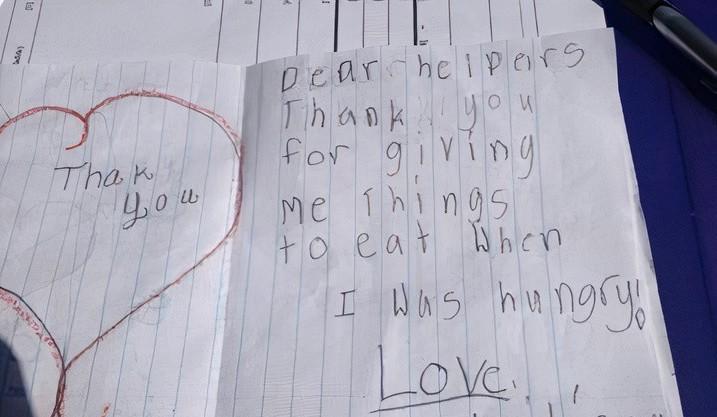 Thak
you
Dear helpers
Thank you
for giving
me things
to eat when
I was hungry!
Love,